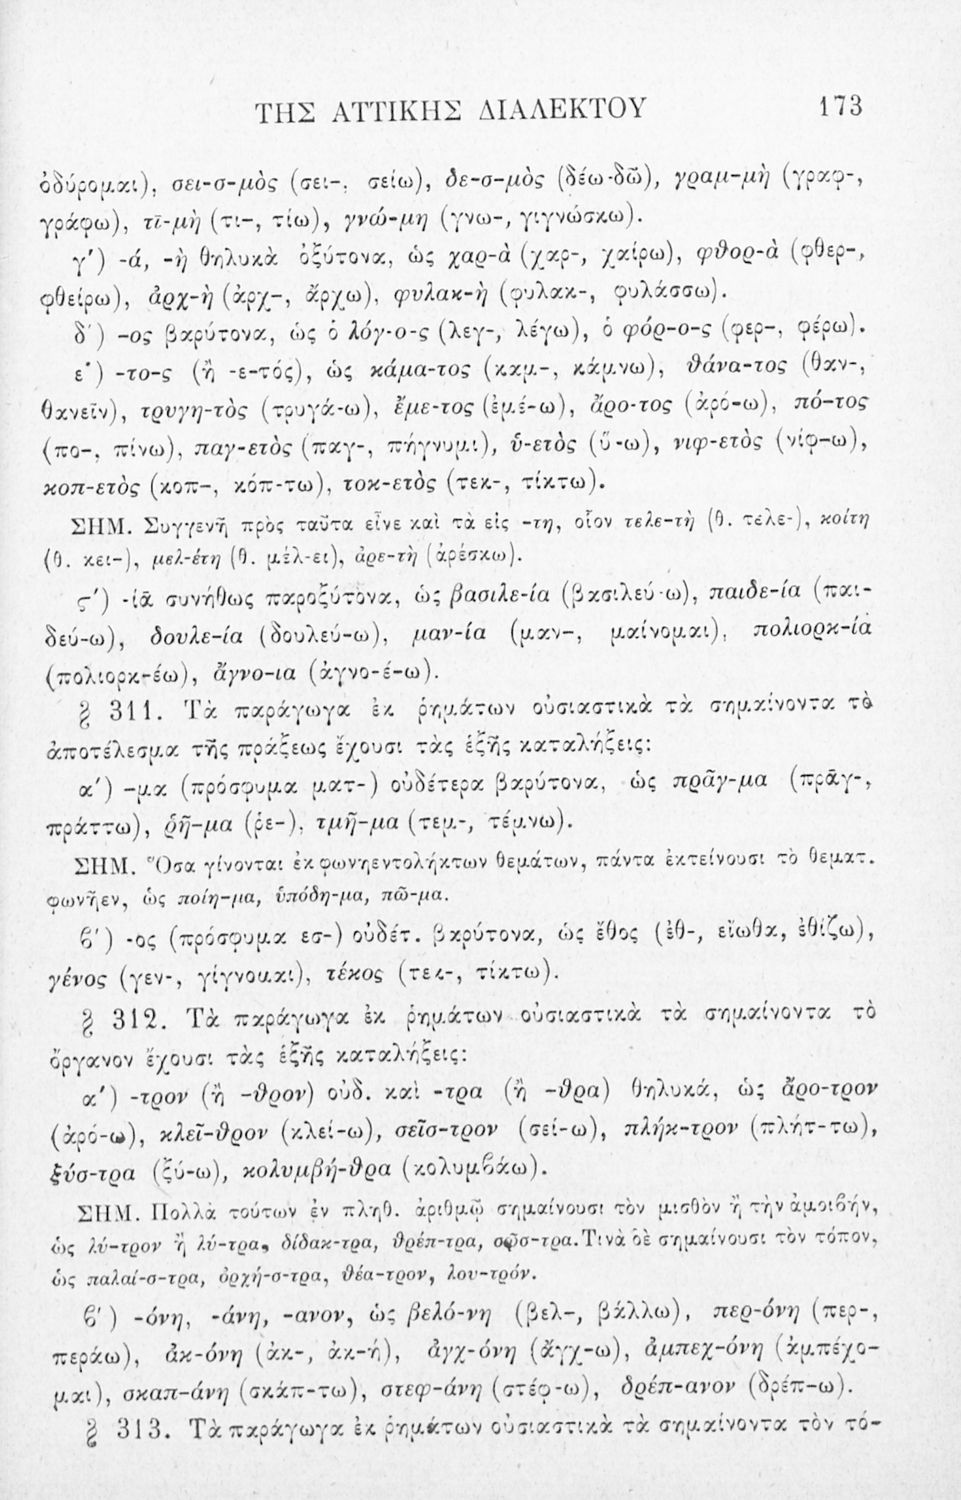 ΤΗΣ ΑΤΤΙΚΗΣ ΔΙΑΛΕΚΤΟΥ 173
ὀδύρομαι), σει-σ-μὸς (σει-, σείω), δε-σ-μὸς (δέω-δῶ), γραμ-μὴ (γραφ-,
γράφω), τῑ-μὴ (τι-, τίω), γνώ-μη (γνω-, γιγνώσκω).
γ′) -ά, -ὴ θηλυκὰ ὀξύτονα, ὡς χαρ-ὰ (χαρ-, χαίρω), φθορ-ὰ (φθερ-,
φθείρω), ἀρχ-ὴ (ἀρχ-, ἄρχω), φυλακ-ὴ (φυλακ-, φυλάσσω).
δ′) -ος βαρύτονα, ὡς ὁ λόγ-ο-ς (λεγ-, λέγω), ὁ φόρ-ο-ς (φερ-, φέρω).
ε′) -το-ς (ἢ -ε-τός), ὡς κάμα-τος (καμ-, κάμνω), θάνα-τος (θαν-,
θανεῖν), τρυγη-τὸς (τρυγά-ω), ἔμε-τος (ἐμέ-ω), ἄρο-τος (ἀρό-ω), πό-τος
(πο-, πίνω), παγ-ετὸς (παγ-, πήγνυμι), ὑ-ετὸς (ὕ-ω), νιφ-ετὸς (νίφ-ω),
κοπ-ετὸς (κοπ-, κόπ-τω), τοκ-ετὸς (τεκ-, τίκτω).
ΣΗΜ. Συγγενῆ πρὸς ταῦτα εἶνε καὶ τὰ εἰς -τη, οἷον τελε-τὴ (θ. τελε-), κοίτη
(θ. κει-), μελ-έτη (θ. μέλ-ει), ἀρε-τὴ (ἀρέσκω).
ς′) -ίᾱ συνήθως παροξύτονα, ὡς βασιλε-ία (βασιλεύ-ω), παιδε-ία (παι-
δεύ-ω), δουλε-ία (δουλεύ-ω), μαν-ία (μαν-, μαίνομαι), πολιορκ-ία
(πολιορκ-έω), ἄγνο-ια (ἀγνο-έ-ω).
§ 311. Τὰ παράγωγα ἐκ ῥημάτων οὐσιαστικὰ τὰ σημαίνοντα τὸ
ἀποτέλεσμα τῆς πράξεως ἔχουσι τὰς ἑξῆς καταλήξεις:
α′) -μα (πρόσφυμα ματ-) οὐδέτερα βαρύτονα, ὡς πρᾶγ-μα (πρᾱγ-,
πράττω), ῥῆ-μα (ῥε-), τμῆ-μα (τεμ-, τέμνω).
ΣΗΜ. Ὅσα γίνονται ἐκ φωνηεντολήκτων θεμάτων, πάντα ἐκτείνουσι τὸ θεματ.
φωνῆεν, ὡς ποίη-μα, ὑπόδη-μα, πῶ-μα.
β′) -ος (πρόσφυμα εσ-) οὐδέτ. βαρύτονα, ὡς ἔθος (ἐθ-, εἴωθα, ἐθίζω),
γένος (γεν-, γίγνομαι), τέκος (τεκ-, τίκτω).
§ 312. Τὰ παράγωγα ἐκ ῥημάτων οὐσιαστικὰ τὰ σημαίνοντα τὸ
ὄργανον ἔχουσι τὰς ἑξῆς καταλήξεις:
α′) -τρον (ἢ -θρον) οὐδ. καὶ -τρα (ἢ -θρα) θηλυκά, ὡς ἄρο-τρον
(ἀρό-ω), κλεῖ-θρον (κλεί-ω), σεῖσ-τρον (σεί-ω), πλήκ-τρον (πλήτ-τω),
ξύσ-τρα (ξύ-ω), κολυμβή-θρα (κολυμβάω).
ΣΗΜ. Πολλὰ τούτων ἐν πληθ. ἀριθμῷ σημαίνουσι τὸν μισθὸν ἢ τὴν ἀμοιβήν,
ὡς λύ-τρον ἢ λύ-τρα, δίδακ-τρα, θρέπ-τρα, σῶσ-τρα. Τινὰ δὲ σημαίνουσι τὸν τόπον,
ὡς παλαί-σ-τρα, ὀρχή-σ-τρα, θέα-τρον, λου-τρόν.
β′) -όνη, -άνη, -ανον, ὡς βελό-νη (βελ-, βάλλω), περ-όνη (περ-,
περάω), ἀκ-όνη (ἀκ-, ἀκ-ή), ἀγχ-όνη (ἄγχ-ω), ἀμπεχ-όνη (ἀμπέχο-
μαι), σκαπ-άνη (σκάπ-τω), στεφ-άνη (στέφ-ω), δρέπ-ανον (δρέπ-ω).
§ 313. Τὰ παράγωγα ἐκ ῥημάτων οὐσιαστικὰ τὰ σημαίνοντα τὸν τό-